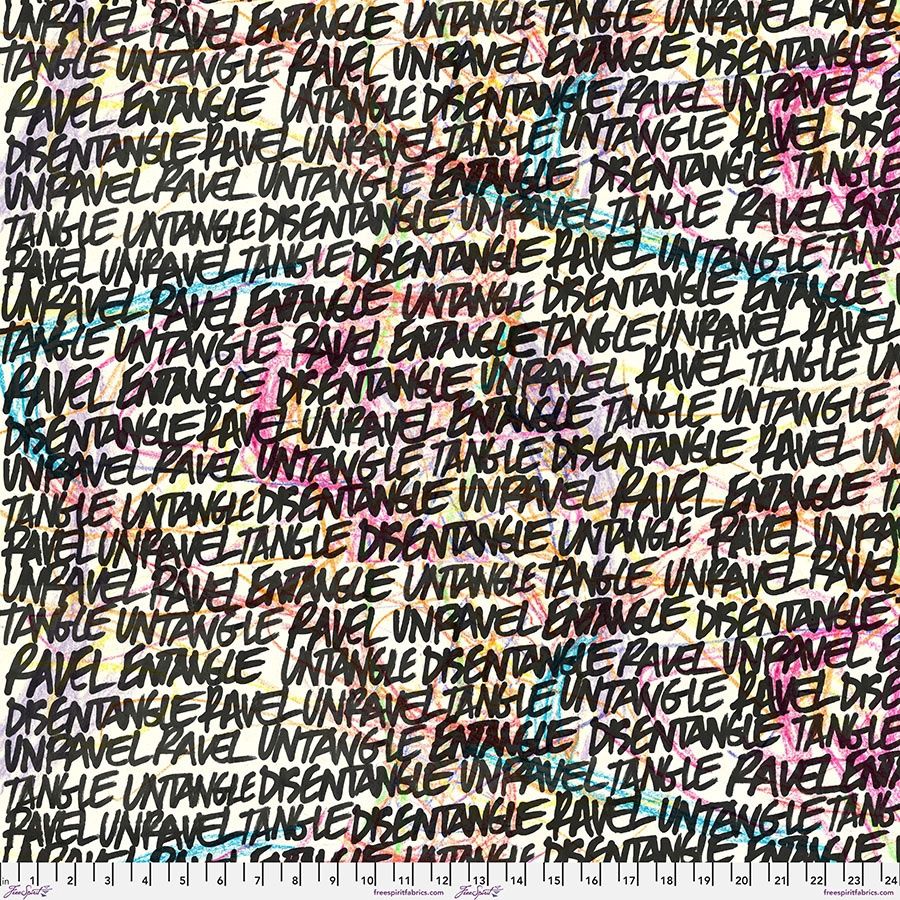 UNRAVEL RAVEL ENTANGLE UNTANGLE TANGLE UNRAVEL RAVEL
TANGLE UNTANGLE RAVEL UNRAVEL ENTANGLE DISENTANGLE
RAVEL ENTANGLE UNTANGLE DISENTANGLE RAVEL UNRAVEL E
DISENTANGLE RAVEL UNRAVEL TANGLE UNTANGLE RAVEL DISE
UNRAVEL RAVEL UNTANGLE ENTANGLE DISENTANGLE TANGLE
TANGLE UNTANGLE DISENTANGLE UNRAVEL TANGLE RAVEL ENTA
RAVEL UNRAVEL TANGLE DISENTANGLE RAVEL UNTANGLE TANG
UNRAVEL RAVEL ENTANGLE UNTANGLE DISENTANGLE ENTANGLE
TANGLE UNTANGLE RAVEL ENTANGLE TANGLE UNRAVEL RAVEL
RAVEL ENTANGLE DISENTANGLE UNRAVEL RAVEL TANGLE UN
DISENTANGLE RAVEL UNRAVEL ENTANGLE TANGLE UNTANGLE
UNRAVEL RAVEL UNTANGLE TANGLE DISENTANGLE RAVEL UN
TANGLE UNTANGLE DISENTANGLE UNRAVEL RAVEL ENTANGLE TA
RAVEL UNRAVEL TANGLE DISENTANGLE UNTANGLE RAVEL UNRA
UNRAVEL RAVEL ENTANGLE UNTANGLE TANGLE UNRAVEL RAVEL
TANGLE UNTANGLE RAVEL UNRAVEL ENTANGLE DISENTANGLE
RAVEL ENTANGLE UNTANGLE DISENTANGLE RAVEL UNRAVEL E
DISENTANGLE RAVEL UNRAVEL TANGLE UNTANGLE RAVEL DISE
UNRAVEL RAVEL UNTANGLE ENTANGLE DISENTANGLE TANGLE
TANGLE UNTANGLE DISENTANGLE UNRAVEL TANGLE RAVEL ENTA
RAVEL UNRAVEL TANGLE DISENTANGLE RAVEL UNTANGLE TANG
UNRAVEL RAVEL ENTANGLE UNTANGLE DISENTANGLE ENTANGLE
in 1 2 3 4 5 6 7 8 9 10 11 12 13 14 15 16 17 18 19 20 21 22 23 24
FreeSpirit freespiritfabrics.com FreeSpirit freespiritfabrics.com